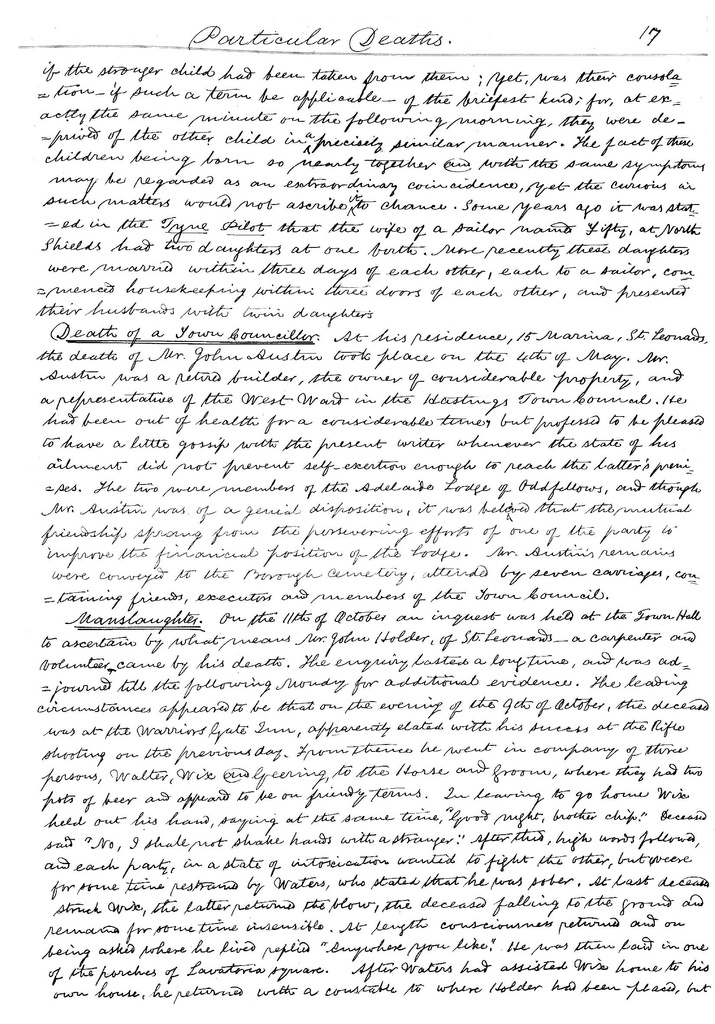 Particular Deaths. 17
if the stronger child had been taken from them; yet, was their consola-
=tion – if such a term be applicable – of the briefest kind; for, at ex-
actly the same minute on the following morning, they were de-
=prived of the other child in a precisely similar manner. The fact of these
children being born so nearly together and with the same symptoms
may be regarded as an extraordinary coincidence, yet the curious in
such matters would not ascribe it to chance. Some years ago it was stat-
=ed in the Tyne Pilot that the wife of a sailor named Fifty, at North
Shields had two daughters at one birth. More recently these daughters
were married within three days of each other, each to a sailor, com
=menced housekeeping within three doors of each other, and presented
their husbands with twin daughters
Death of a Town Councillor. At his residence, 15 Marina, St. Leonards,
the death of Mr. John Austin took place on the 4th of May. Mr.
Austin was a retired builder, the owner of considerable property, and
a representative of the West Ward in the Hastings Town Council. He
had been out of health for a considerable time, but professed to be pleased
to have a little gossip with the present writer whenever the state of his
ailment did not prevent self-exertion enough to reach the latter's premi-
=ses. The two were members of the Adelaide Lodge of Oddfellows, and though
Mr. Austin was of a genial disposition, it was believed that the mutual
friendship sprang from the persevering efforts of one of the party to
improve the financial position of the Lodge. Mr. Austin's remains
were conveyed to the Borough Cemetery, attended by seven carriages, con-
=taining friends, executors and members of the Town Council.
Manslaughter. On the 11th of October an inquest was held at the Town Hall
to ascertain by what means Mr. John Holder, of St. Leonards – a carpenter and
volunteer, came by his death. The enquiry lasted a long time, and was ad-
=journed till the following Monday for additional evidence. The leading
circumstances appeared to be that on the evening of the 9th of October, the deceased
was at the Warriors Gate Inn, apparently elated with his success at the Rifle
shooting on the previous day. From thence he went in company of three
persons, Walter, Wix and Geering, to the Horse and Groom, where they had two
pots of beer and appeard to be on friendly terms. In leaving to go home Wix
held out his hand, saying at the same time, "Good night, brother chip." Deceased
said "No, I shall not shake hands with a stranger." After this, high words followed,
and each party, in a state of intoxication wanted to fight the other, but were
for some time restraind by Waters, who stated that he was sober. At last deceased
struck Wix, the latter returned the blow, the deceased falling to the ground and
remaind for some time insensible. At length consciousness returned and on
being asked where he lived replied "Anywhere you like." He was then laid in one
of the porches of Lavatoria square. After Waters had assisted Wix home to his
own house, he returned with a constable to where Holder had been placed, but